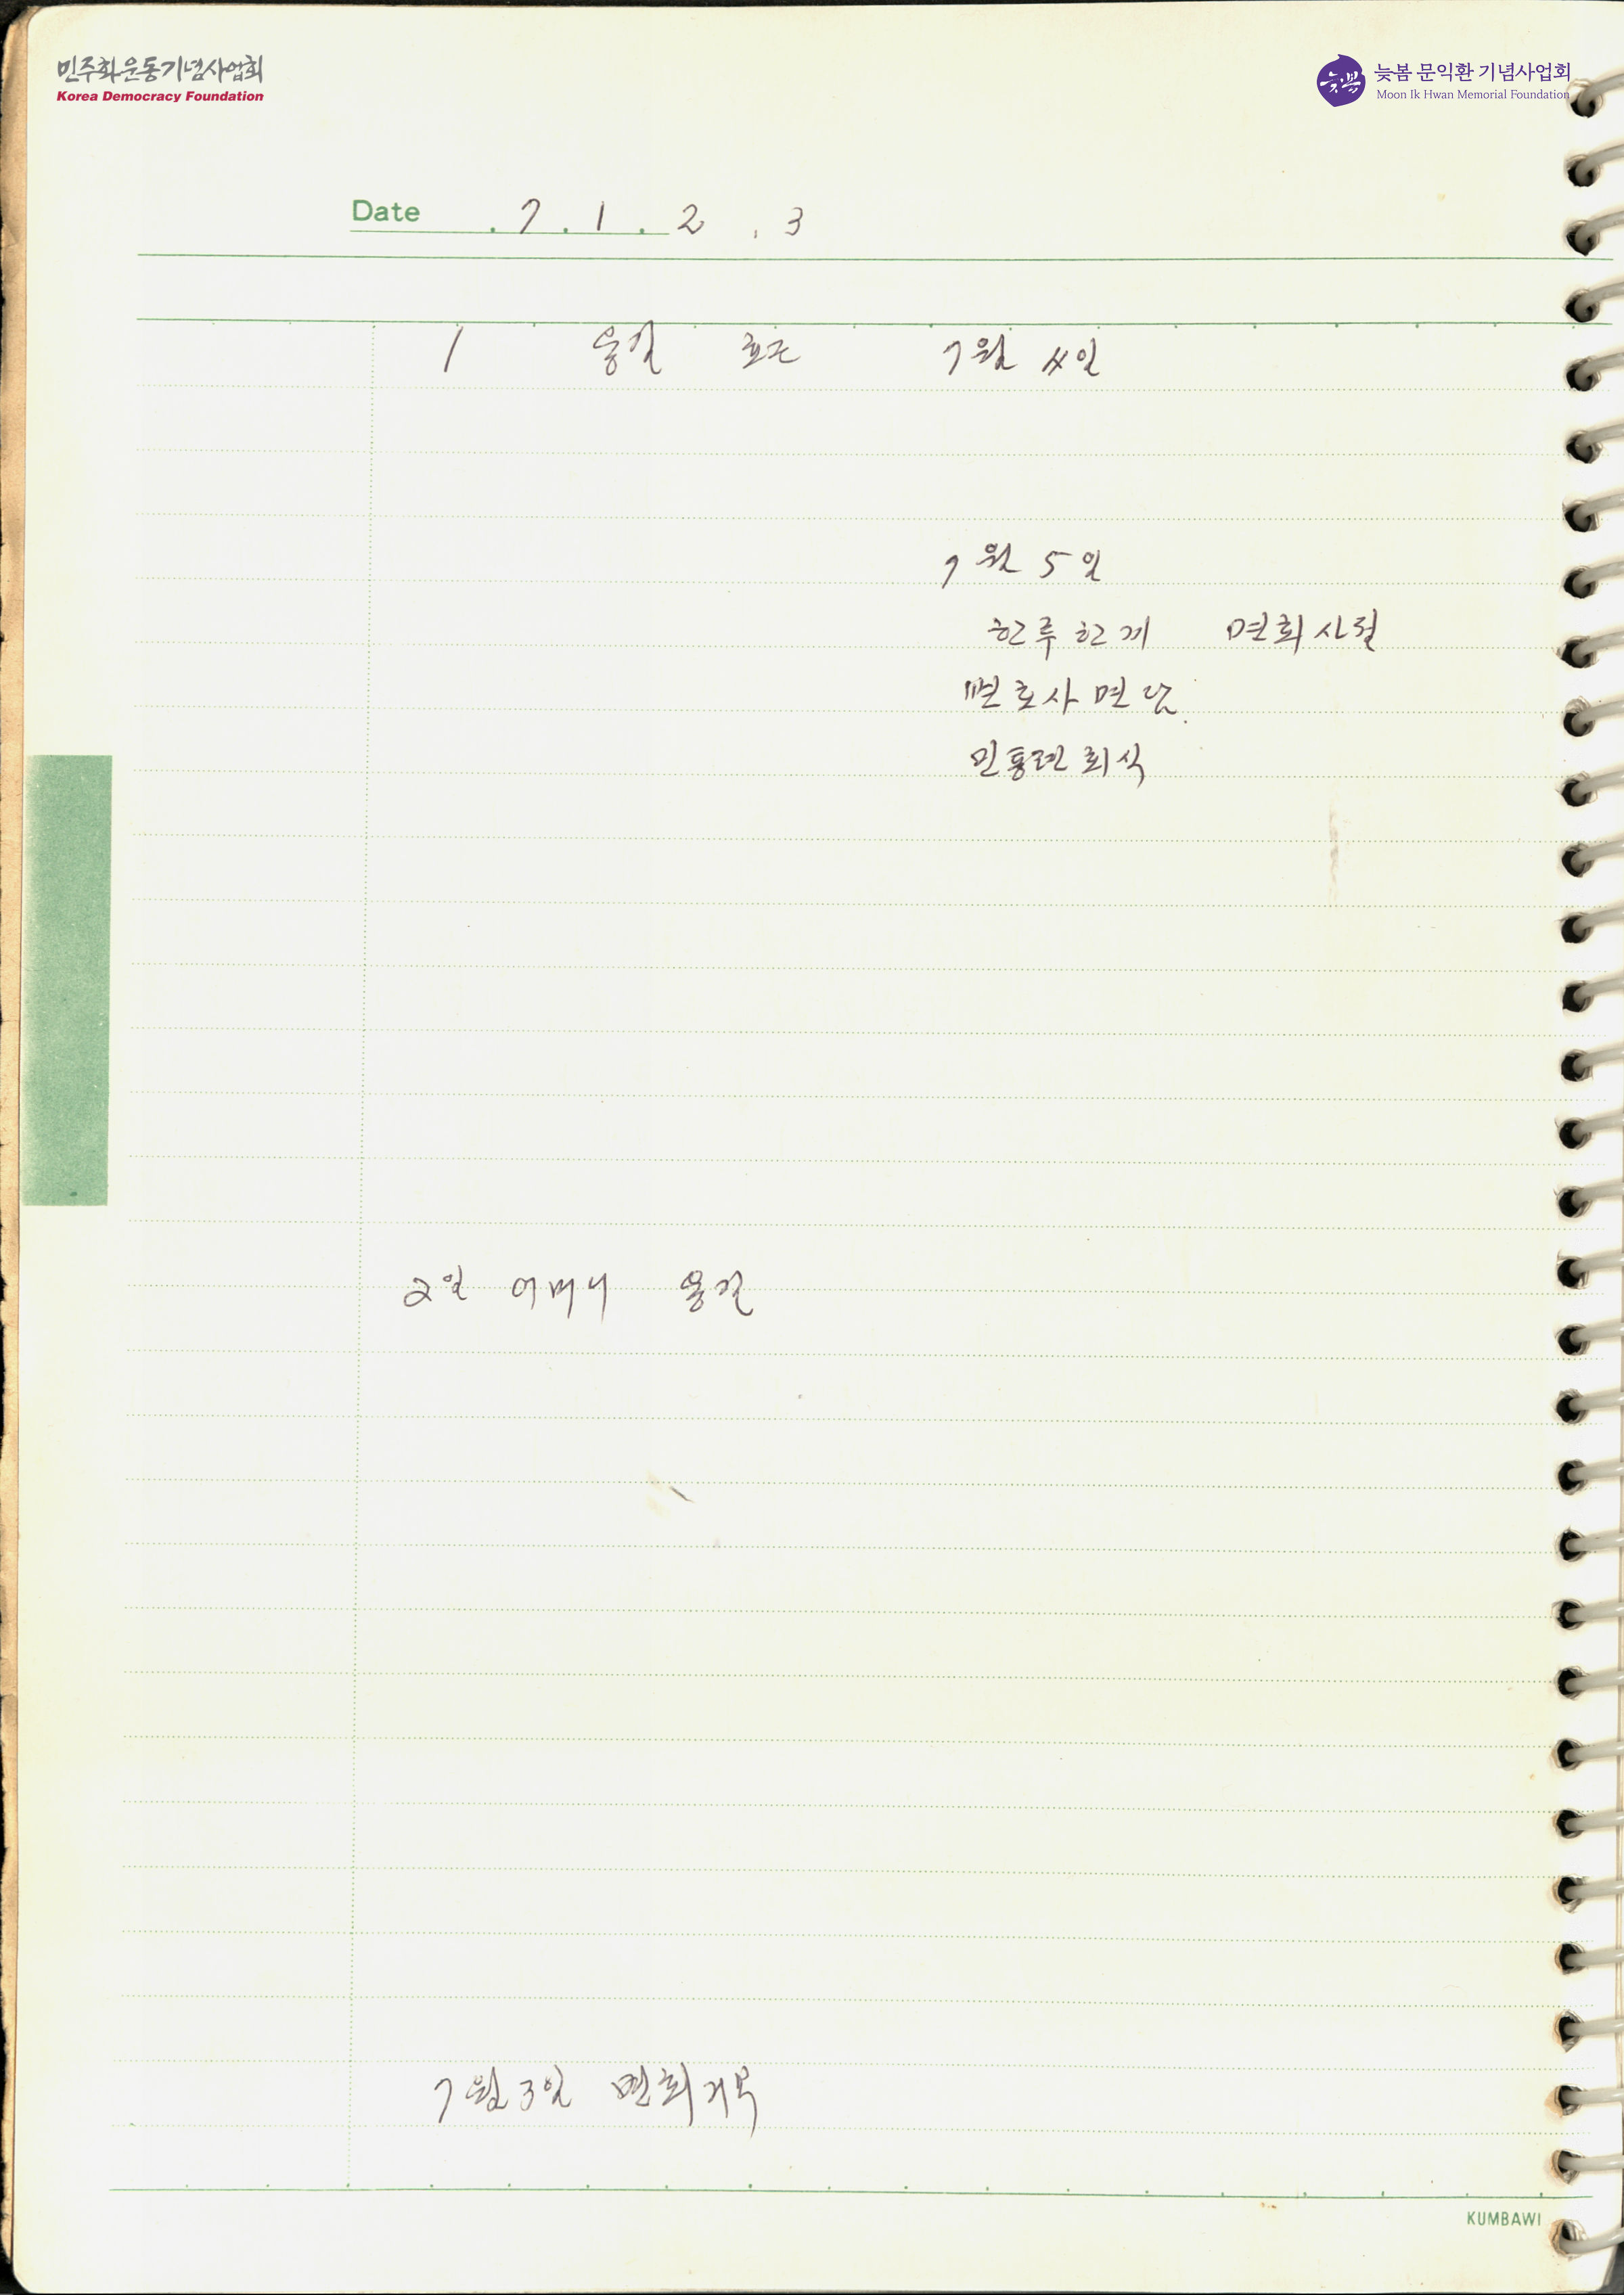 민주화운동기념사업회
Korea Democracy Foundation
늦봄 문익환 기념사업회
Moon Ik Hwan Memorial Foundation
늦봄
Date . 7 . 1 . 2 . 3
1 용길 호근 7월 4일
7월 5일
하루한게 면회사절
변호사 면담.
민통련 회식
2일 어머니 용길
7월 3일 면회거부
KUMBAWI